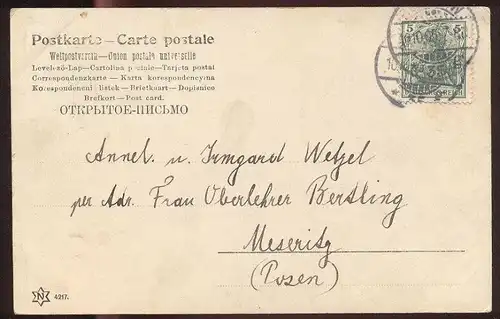 Postkarte — Carte postale
Weltpostverein — Union postale universelle
Levelező-Lap — Cartolina postale — Tarjeta postal
Correspondenzkarte — Karta korespondencyjna
Korespondenční listek — Brevkaart — Dopisnice
Brefkort — Post card.
ОТКРЫТОЕ-ПИСЬМО
5
REICH
Annel. u. Irmgard Wetzel
per Adr. Frau Oberlehrer Bertling
Meseritz
(Posen)
N 4217.